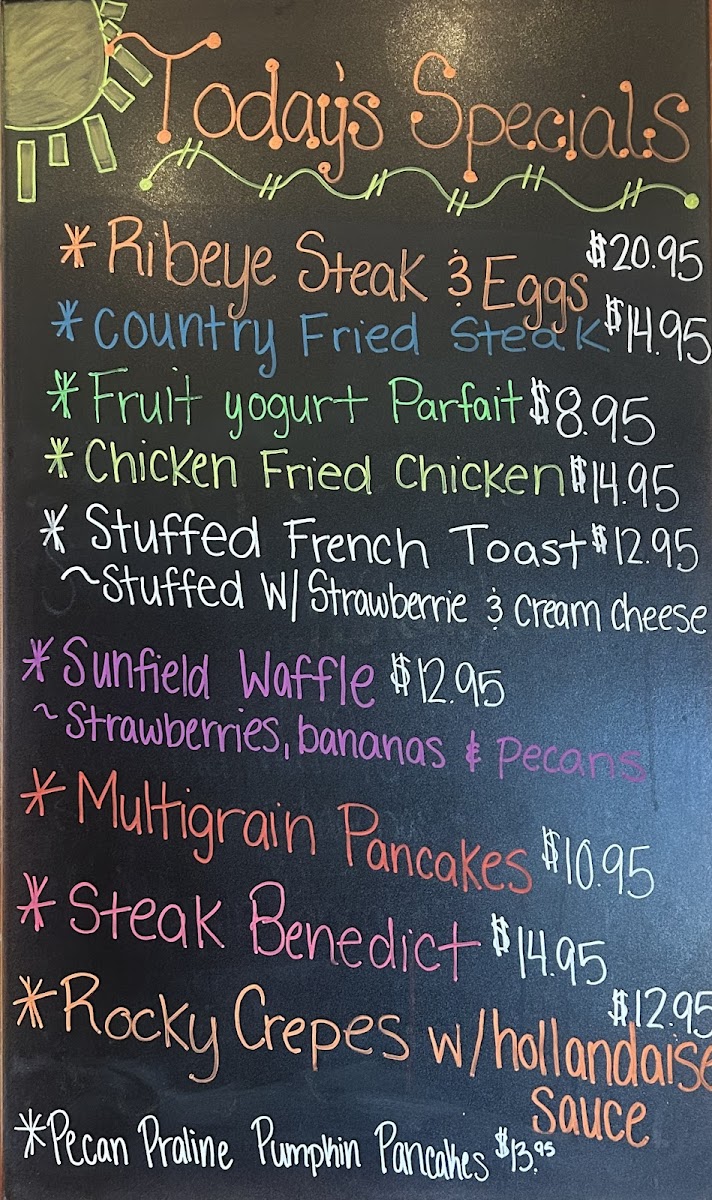 Today's Specials
* Ribeye Steak & Eggs $20.95
* Country Fried Steak $14.95
* Fruit yogurt Parfait $8.95
* Chicken Fried Chicken $14.95
* Stuffed French Toast $12.95
~Stuffed W/ Strawberrie & cream cheese
* Sunfield Waffle $12.95
~Strawberries, bananas & Pecans
* Multigrain Pancakes $10.95
* Steak Benedict $14.95
* Rocky Crepes w/hollandaise $12.95
sauce
* Pecan Praline Pumpkin Pancakes $13.95